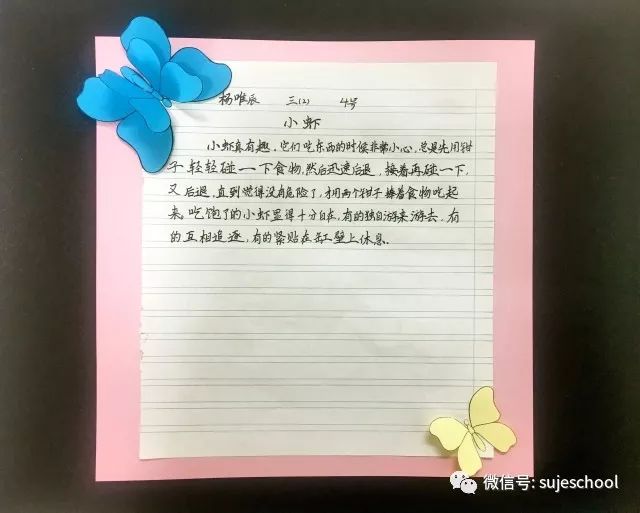 杨唯辰 三(2) 4号
小虾
小虾真有趣，它们吃东西的时候非常小心，总是先用钳
子轻轻碰一下食物，然后迅速后退，接着再碰一下，
又后退，直到觉得没有危险了，才用两个钳子捧着食物吃起
来。吃饱了的小虾显得十分自在，有的独自游来游去，有
的互相追逐，有的紧贴在缸壁上休息。
微信号: sujeschool